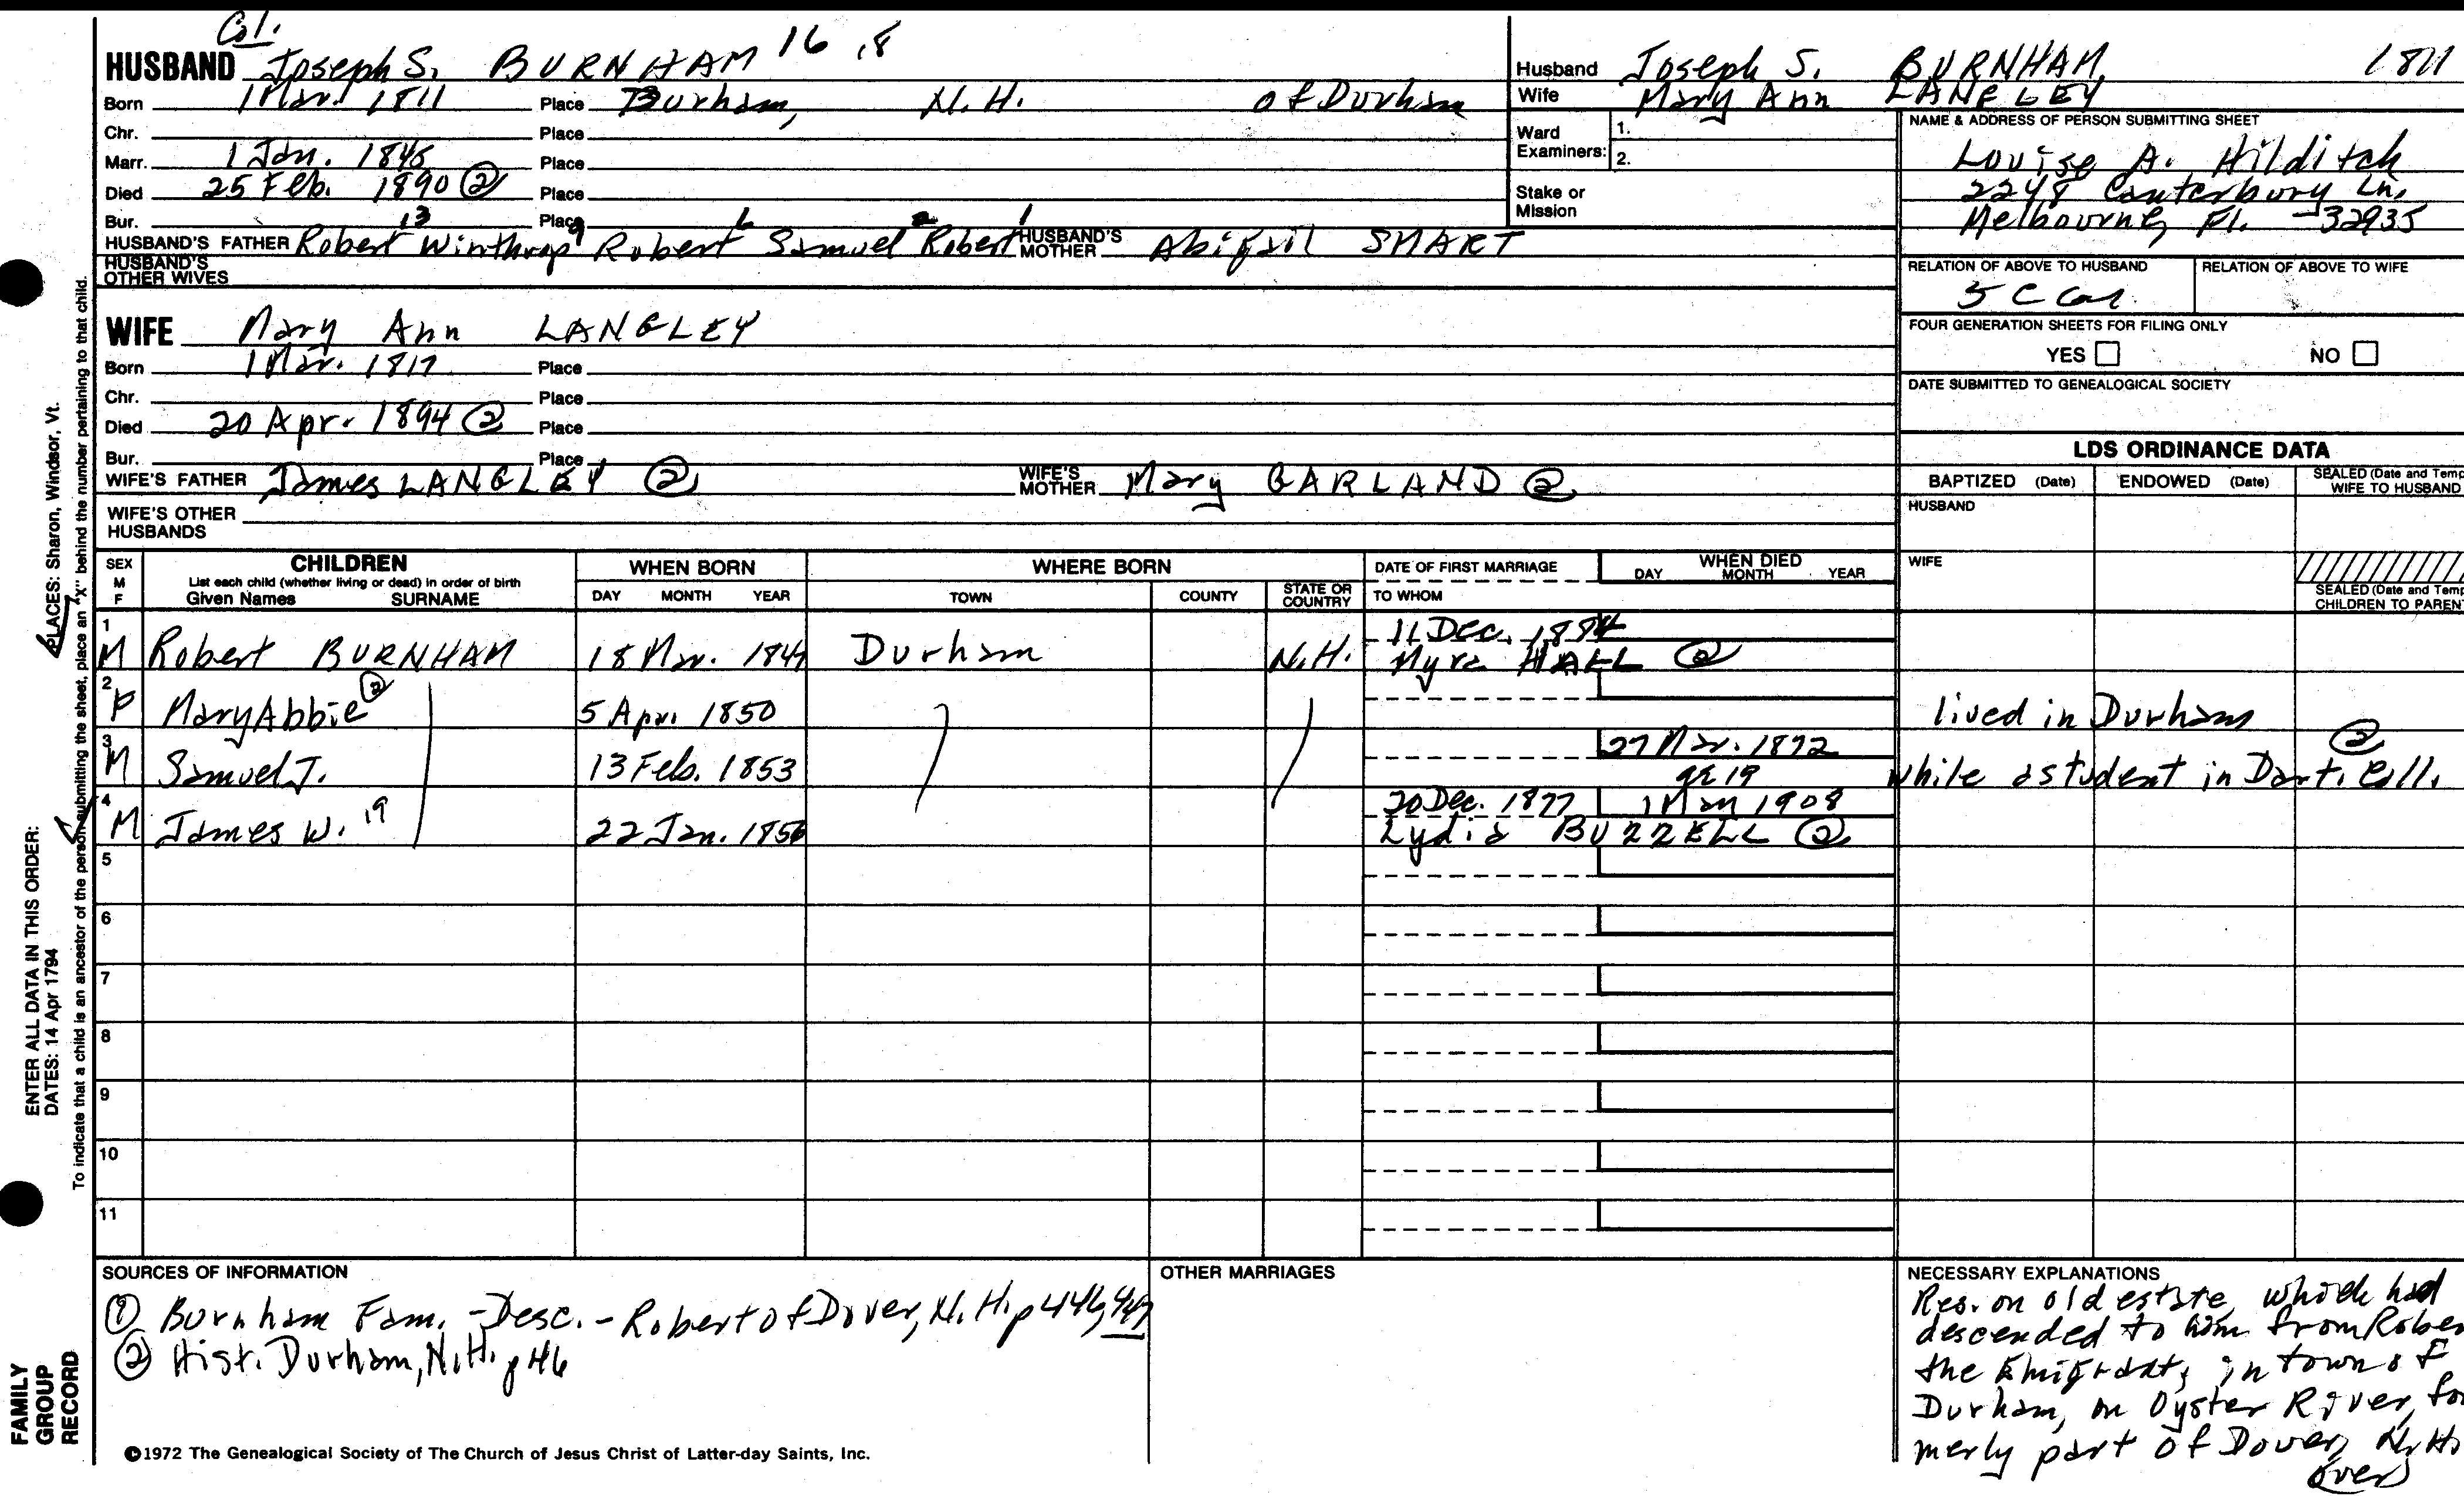 Col.
HUSBAND Joseph S. BURNHAM 16 18
Born 1 Mar. 1811 Place Durham, N.H. of Durham
Chr. Place
Marr. 1 Jan. 1845 Place
Died 25 Feb. 1890 ② Place
Bur. Place
13 9 6 2 1
HUSBAND'S FATHER Robert Winthrop Robert Samuel Robert HUSBAND'S MOTHER Abigail SMART
HUSBAND'S OTHER WIVES
WIFE Mary Ann LANGLEY
Born 1 Mar. 1817 Place
Chr. Place
Died 20 Apr. 1894 ② Place
Bur. Place
WIFE'S FATHER James LANGLEY ② WIFE'S MOTHER Mary GARLAND ②
WIFE'S OTHER HUSBANDS
Husband Joseph S. BURNHAM 1811
Wife Mary Ann LANGLEY
Ward Examiners: 1.
2.
Stake or Mission
NAME & ADDRESS OF PERSON SUBMITTING SHEET
Louise A. Hilditch
2248 Canterbury Ln.
Melbourne, Fl. 32935
RELATION OF ABOVE TO HUSBAND RELATION OF ABOVE TO WIFE
5 C
FOUR GENERATION SHEETS FOR FILING ONLY
YES NO
DATE SUBMITTED TO GENEALOGICAL SOCIETY
LDS ORDINANCE DATA
BAPTIZED (Date) ENDOWED (Date) SEALED (Date and Temp
WIFE TO HUSBAND
HUSBAND
WIFE
SEALED (Date and Temp
CHILDREN TO PARENT
SEX M F CHILDREN WHEN BORN WHERE BORN DATE OF FIRST MARRIAGE WHEN DIED
List each child (whether living or dead) in order of birth
Given Names SURNAME DAY MONTH YEAR TOWN COUNTY STATE OR COUNTRY TO WHOM DAY MONTH YEAR
1 11 Dec. 1884
M Robert BURNHAM 18 Mar. 1847 Durham N.H. Myra HALL ②
2
F Mary Abbie ② 5 Apr. 1850 lived in Durham
3 27 Mar. 1872 ②
M Samuel J. 13 Feb. 1853 ae 19 while a student in Dart. Coll.
4 20 Dec. 1877 1 May 1908
M James W. 19 22 Jan. 1856 Lydia BUZZELL ②
5
6
7
8
9
10
11
SOURCES OF INFORMATION
① Burnham Fam. - Desc. - Robert of Dover, N.H. p 446, 447
② Hist. Durham, N.H. p 46
OTHER MARRIAGES
NECESSARY EXPLANATIONS
Res. on old estate which had
descended to him from Rober
the Emigrant, in town of
Durham, on Oyster River, for
merly part of Dover, N.H.
(over)
©1972 The Genealogical Society of The Church of Jesus Christ of Latter-day Saints, Inc.
PLACES: Sharon, Windsor, Vt.
To indicate that a child is an ancestor of the person submitting the sheet, place an "X" behind the number pertaining to that child.
ENTER ALL DATA IN THIS ORDER:
DATES: 14 Apr 1794
FAMILY
GROUP
RECORD